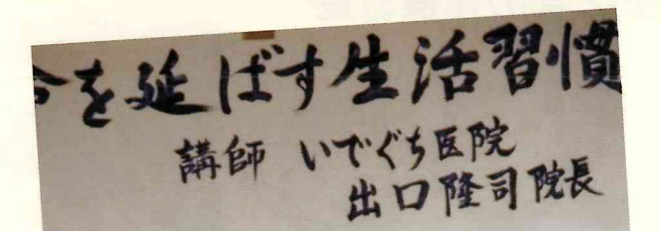 を延ばす生活習慣
講師 いでぐち医院
出口隆司院長